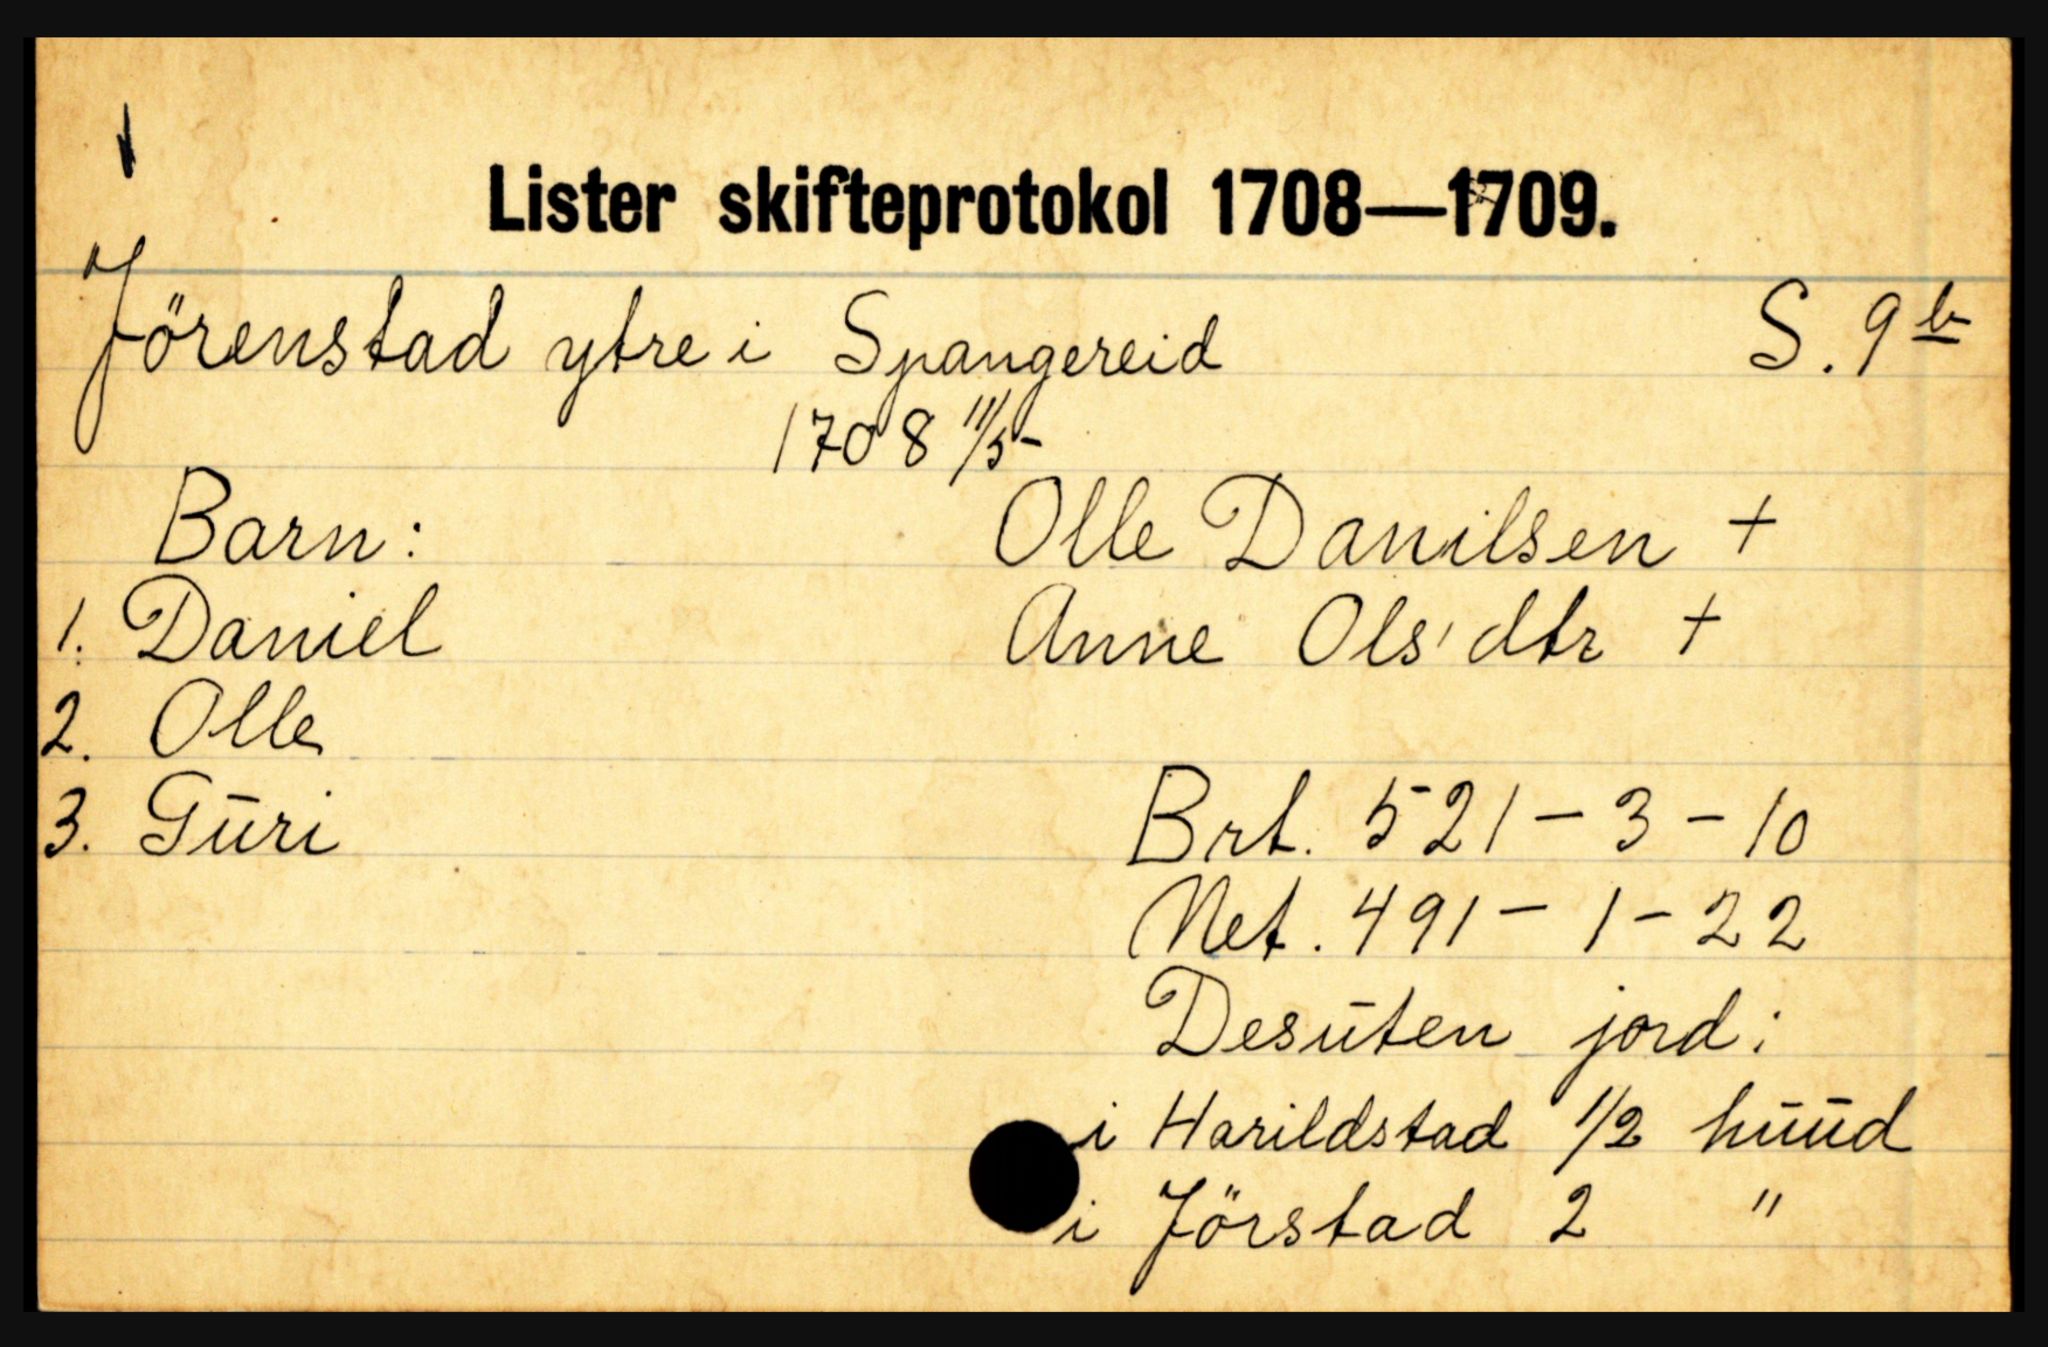 Lister skifteprotokol 1708—1709.
Jörenstad ytre i Spangereid S. 9 b
1708 11/5
Barn: Olle Danilsen +
1. Daniel Anne Ols'dtr +
2. Olle
3. Gūri Brt. 521 – 3 – 10
Net. 491 – 1 – 22
Desūten jord:
i Harildstad 1/2 hūūd
i Jörstad 2 "